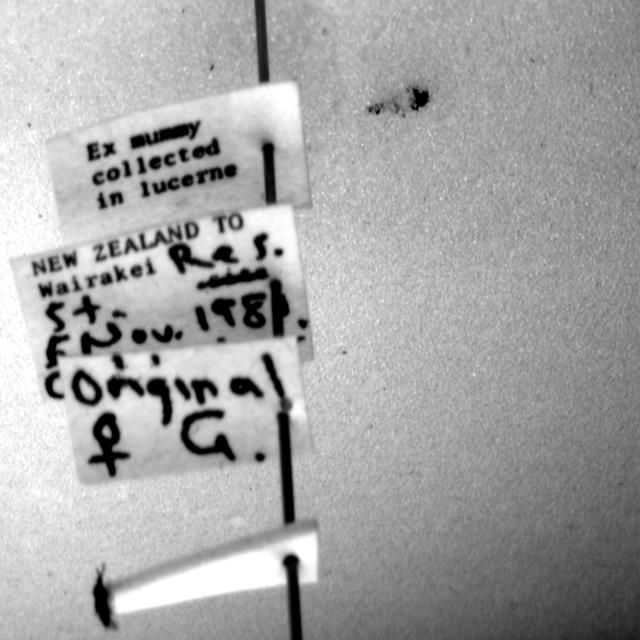 Ex mummy
collected
in lucerne
NEW ZEALAND TO
Wairakei Res.
St.
Nov. 198
Original
♀ G.